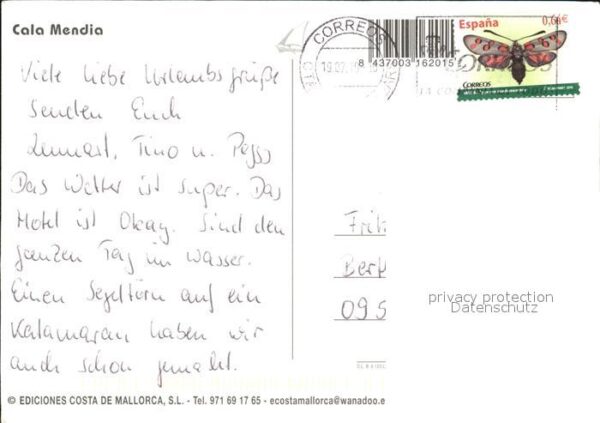 Cala Mendia
CORREOS
8 437003 162015
España
0,64€
CORREOS
Viele liebe Urlaubsgrüße
senden Euch
Lennart, Tino u. Peggy
Das Wetter ist super. Das
Hotel ist Okay. Sind den
ganzen Tag im Wasser.
Einen Segeltörn auf ein
Katamaran haben wir
auch schon gemacht.
Frit
Ber
095
privacy protection
Datenschutz
© EDICIONES COSTA DE MALLORCA, S.L. - Tel. 971 69 17 65 - ecostamallorca@wanadoo.e